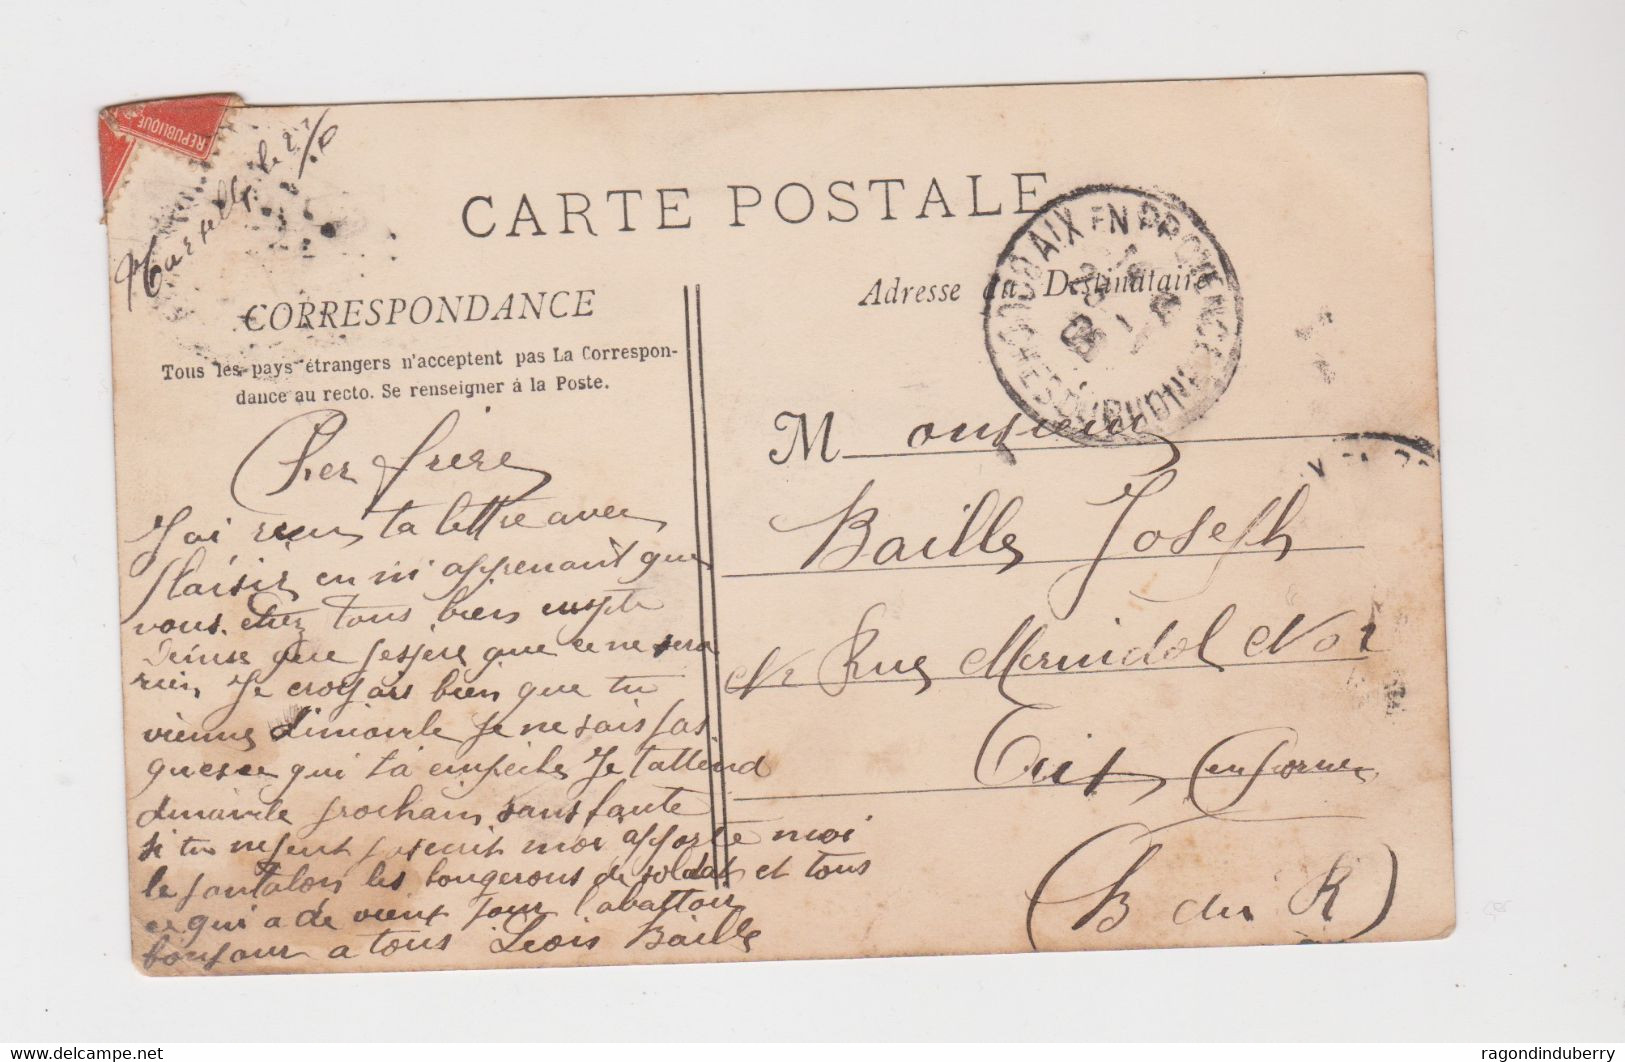 REPUBLIQUE
Marseille le 2
CARTE POSTALE
AIX EN PROVENCE
BES DU RHONE
CORRESPONDANCE
Adresse du Destinataire
Tous les pays étrangers n'acceptent pas La Correspon-
dance au recto. Se renseigner à la Poste.
Cher frère
J'ai recus ta lettre avec
plaisir en m'apprenant que
vous etiez tous bien
que j'espère que ce ne sera
rien Je croyais bien que tu
viennes dimanche je ne sais pas
quesce qui t'a empeche Je t'attend
dimanche prochain sans faute
si tu ne peut pas ecrit moi apporte moi
le pantalon les bougerons de soldat et tous
ce qui a de vieux pour l'abattoir
bonjour a tous Leon Baille
Monsieur
Baille Joseph
Rue Merindol No 2
Aix en Provence
(B du R)
ragondinduberry